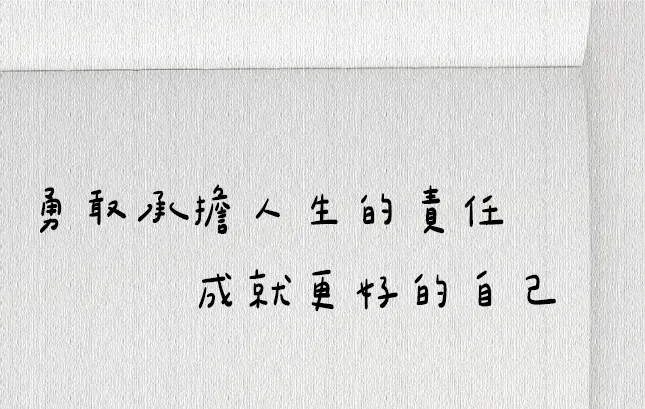 勇敢承擔人生的責任
成就更好的自己